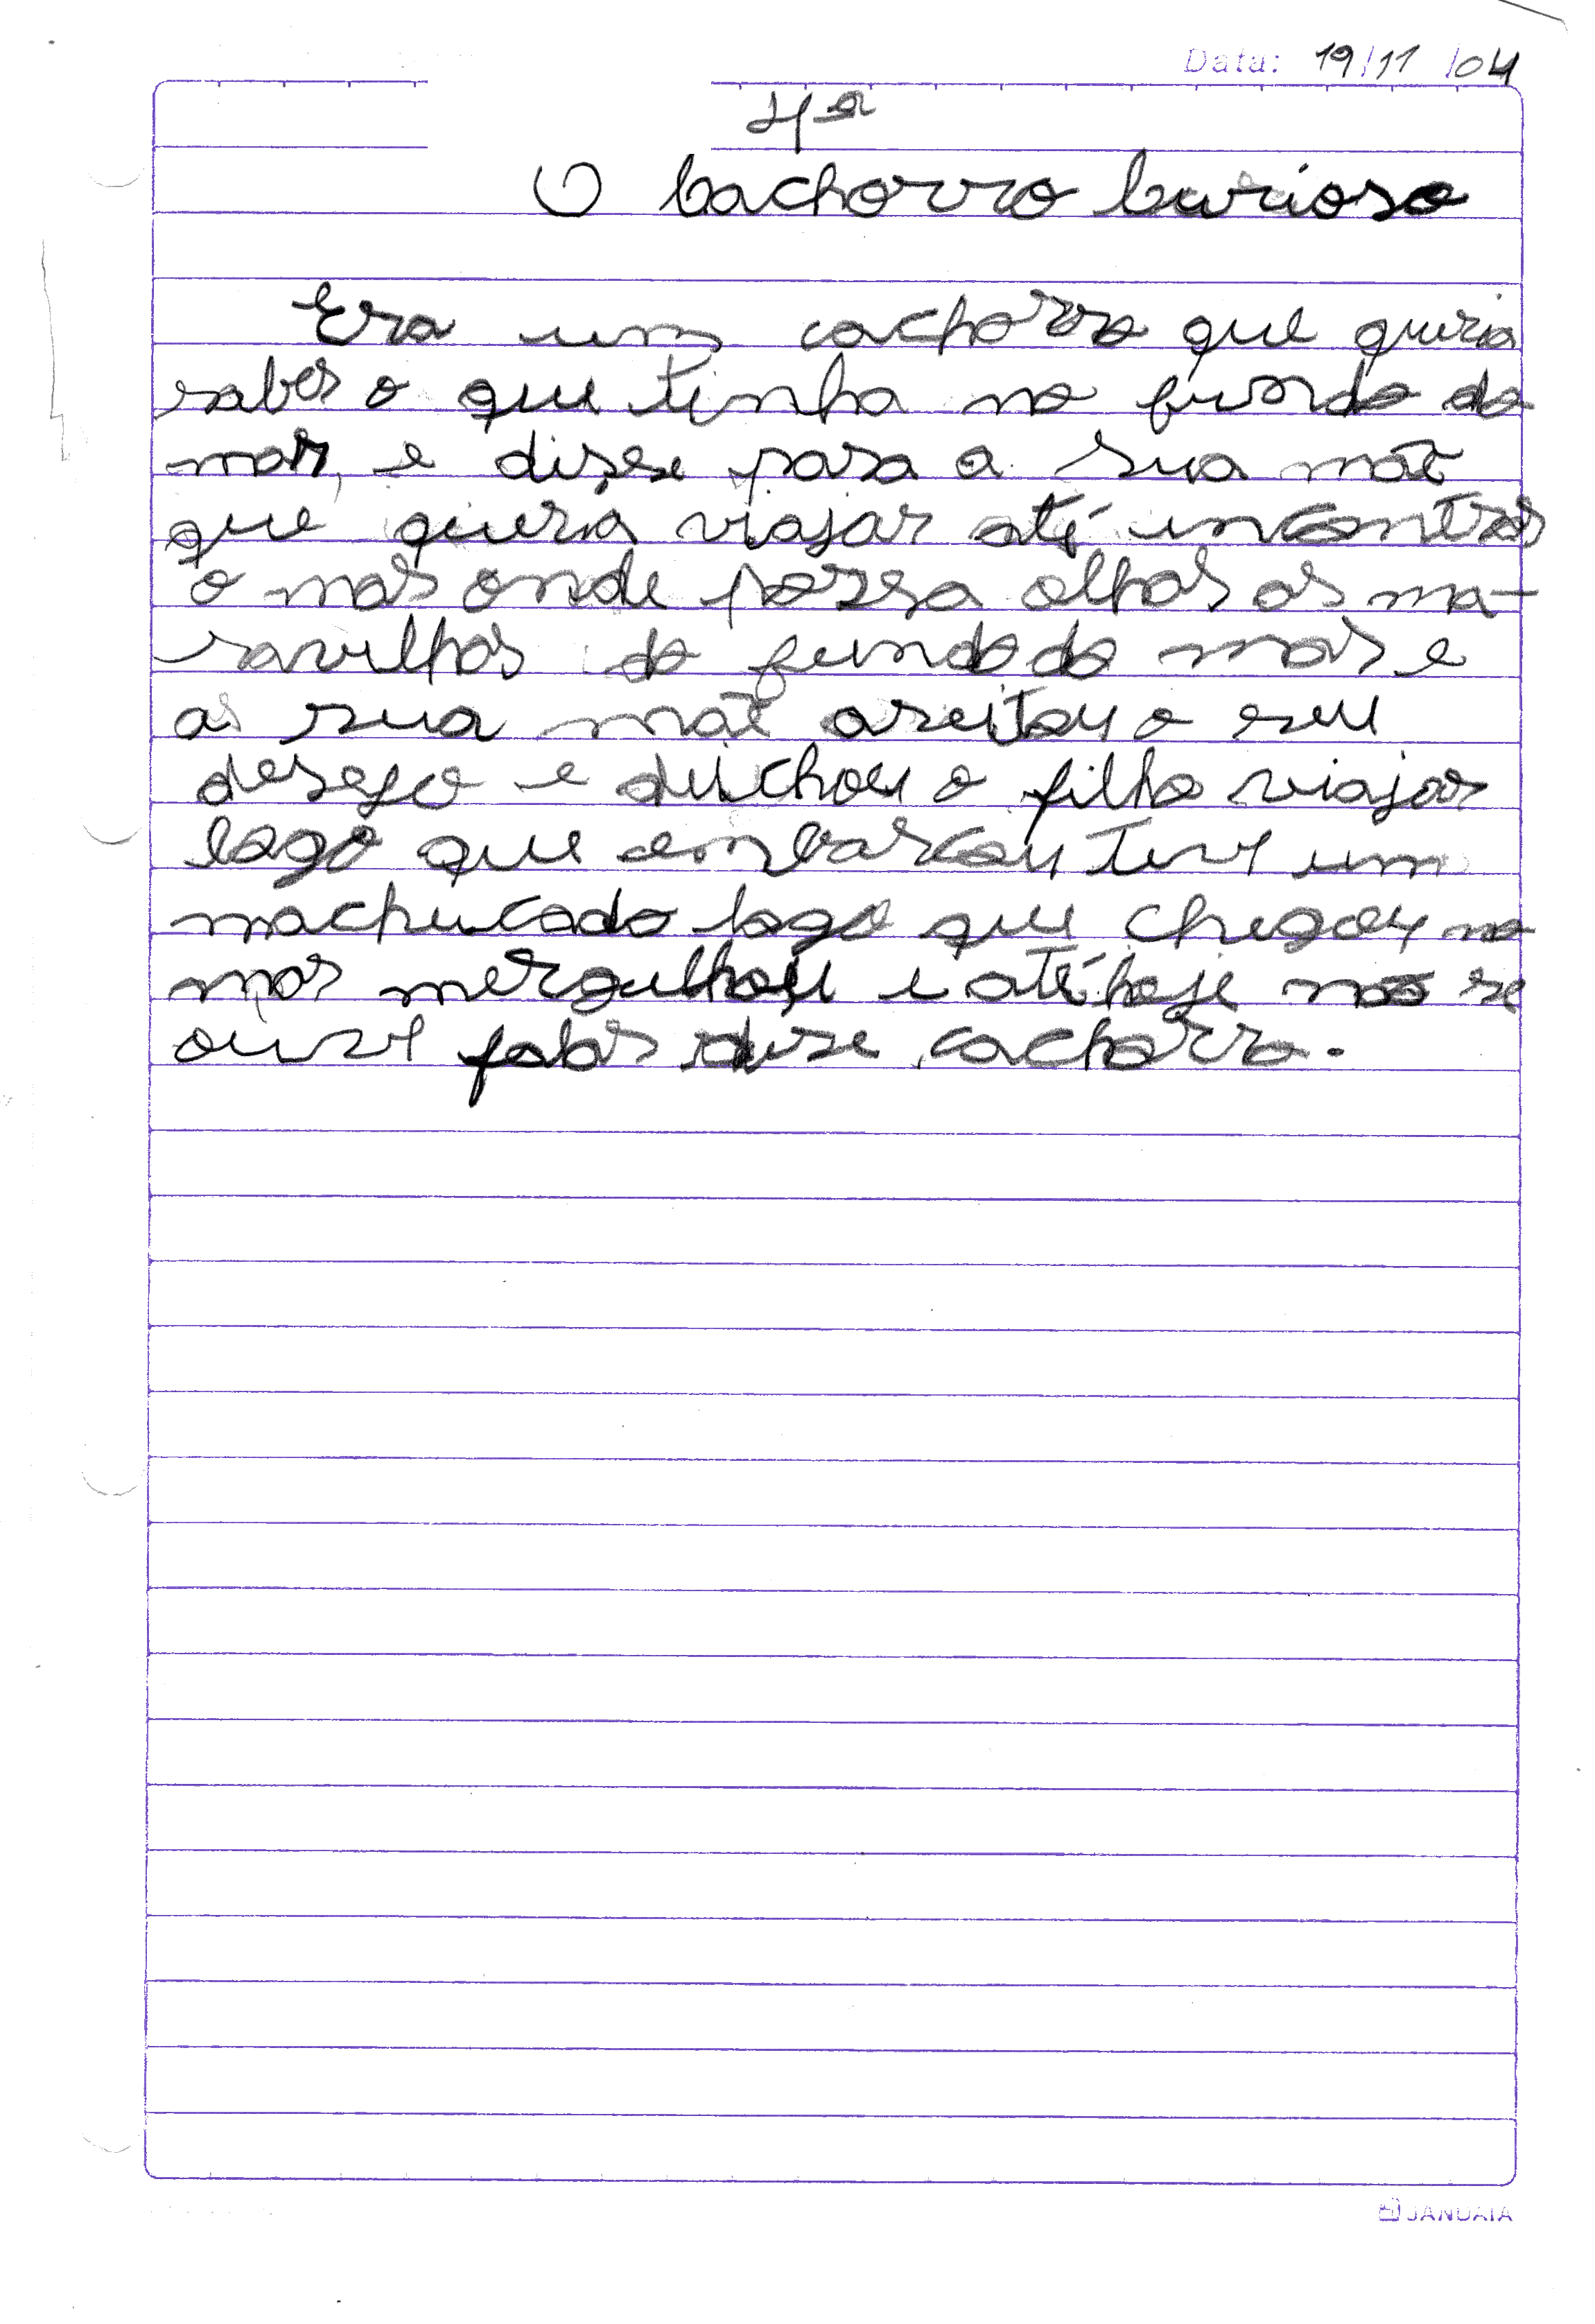 Data: 19/11/04
4ª
O cachorro curioso
Era um cachorro que queria
saber o que tinha no fundo do
mar, e disse para a sua mãe
que queria viajar até encontrar
o mar onde possa olhar as ma-
ravilhas do fundo do mar e
a sua mãe aseitou o seu
desejo e deichou o filho viajar
logo que embarcou teve um
machucado logo que chegou no
mar mergulhou e até hoje não se
ouve falar desse cachorro.
JANDAIA